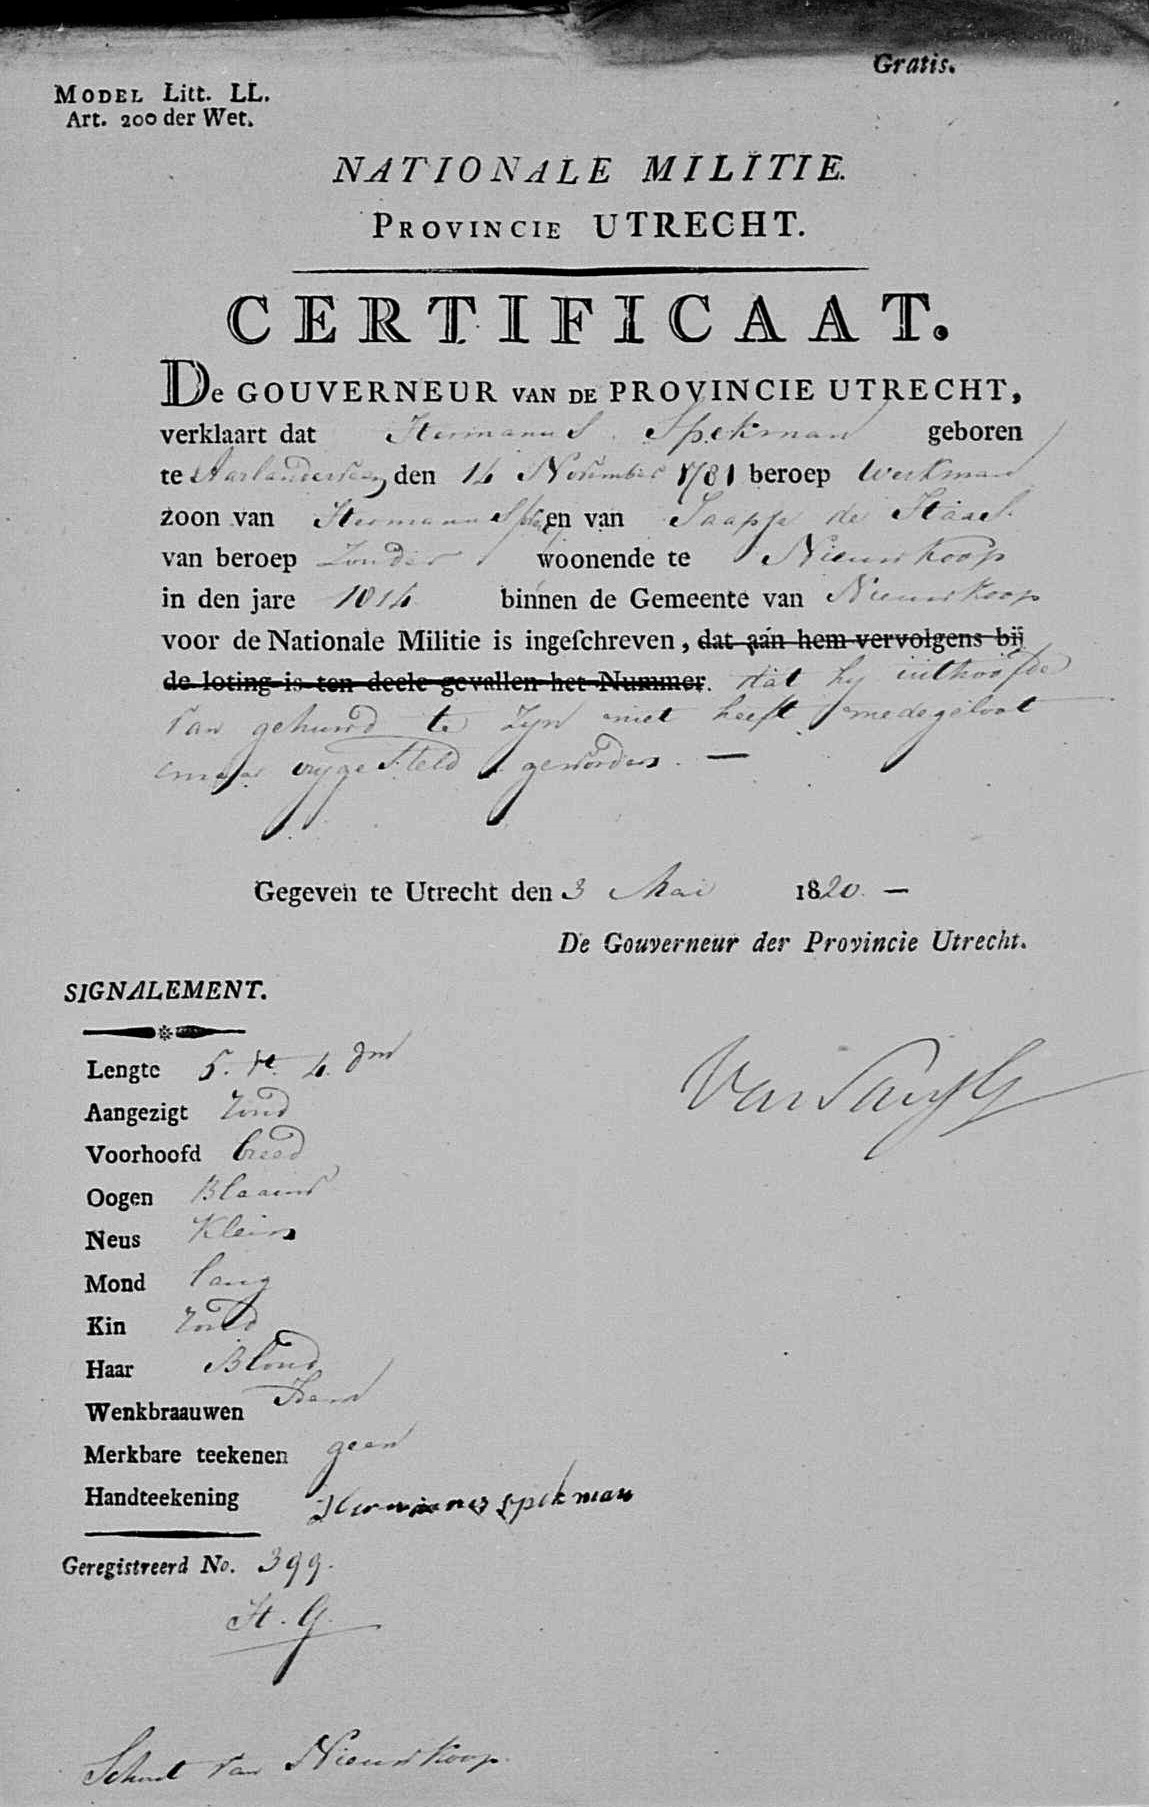 Gratis.
MODEL Litt. LL.
Art. 200 der Wet.
NATIONALE MILITIE.
PROVINCIE UTRECHT.
CERTIFICAAT.
De GOUVERNEUR VAN DE PROVINCIE UTRECHT,
verklaart dat Hermanus Spekman geboren
te Aarlanderveen den 14 November 1781 beroep Werkman
zoon van Hermanus en van Jaapje de
van beroep Zonder woonende te Nieuwkoop
in den jare 1814 binnen de Gemeente van Nieuwkoop
voor de Nationale Militie is ingeschreven, dat aan hem vervolgens bij
de loting is ten deele gevallen het Nummer. dat hy uithoofde
van gehuwd te zyn niet heeft medegeloot
maar vrygesteld geworden. —
Gegeven te Utrecht den 3 Mai 1820. —
De Gouverneur der Provincie Utrecht.
SIGNALEMENT.
Lengte 5. vt. 4. dm
Aangezigt rond
Voorhoofd breed
Oogen Blaauw
Neus Klein
Mond lang
Kin rond
Haar Blond
Wenkbraauwen Idem
Merkbare teekenen geen
Handteekening Hermanus spekman
Geregistreerd No. 399.
H. G.
Schout van Nieuwkoop.